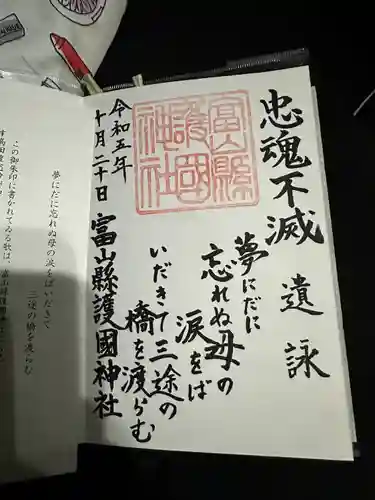 忠魂不滅
遺詠
夢にだに
忘れぬ母の
涙をば
いだきて三途の
橋を渡らむ
富山縣護國神社
令和五年
十月二十日
富山縣
護國
神社
夢にだに忘れぬ母の涙をばいだきて
三途の橋を渡らむ
この御朱印に書かれてゐる歌は、富山縣護國神社